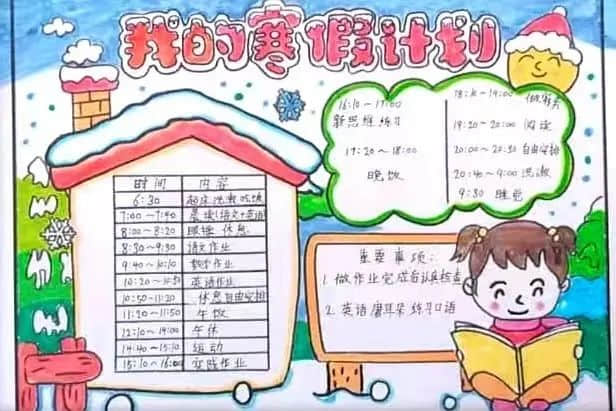 我的寒假计划
时间 内容
6:30 起床洗漱吃饭
7:00～7:40 晨读(语文+英语)
8:00～8:20 眼睡 休息
8:30～9:30 语文作业
9:40～10:10 数学作业
10:20～10:50 英语作业
10:50-11:20 休息自由安排
11:20～11:50 午饭
12:10～14:00 午休
14:40～15:10 运动
15:10～16:00 实践作业
16:10～17:00
新思维练习
17:20～18:00
晚饭
18:10～19:00 做家务
19:20～20:00 阅读
20:00～20:30 自由安排
20:40～9:00 洗漱
9:30 睡觉
重要事项:
1. 做作业完成后认真检查
2. 英语磨耳朵 练习口语